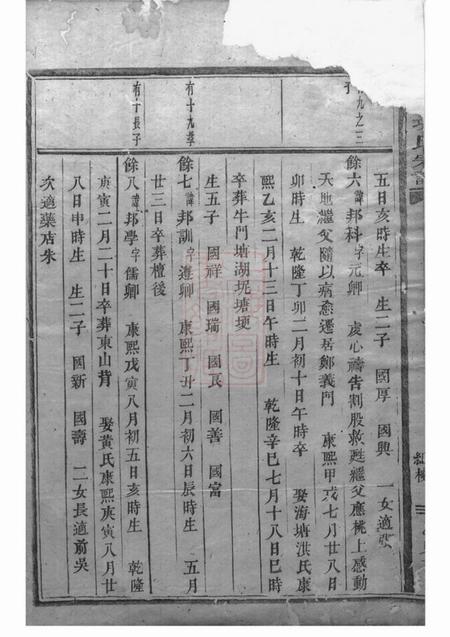 五日亥時生卒 生二子 國厚 國興 一女適張
餘六諱邦科字元卿 虔心禱告割股救甦繼父應桃上感動
天地繼父隨以病愈遷居鄭義門 康熙甲戌七月廿八日
卯時生 乾隆丁卯二月初十日午時卒 娶海塘洪氏康
熙乙亥二月十三日午時生 乾隆辛巳七月十八日巳時
卒葬牛門塘湖坭塘埂
生五子 國祥 國瑞 國民 國善 國富
有十九孝
餘七諱邦訓字遵卿 康熙丁丑二月初六日辰時生 五月
廿三日卒葬檀後
有十長子
餘八諱邦學字儒卿 康熙戊寅八月初五日亥時生 乾隆
庚寅二月二十日卒葬東山背 娶黄氏康熙庚寅八月廿
八日申時生 生二子 國新 國壽 二女長適前吳
次適藥店朱